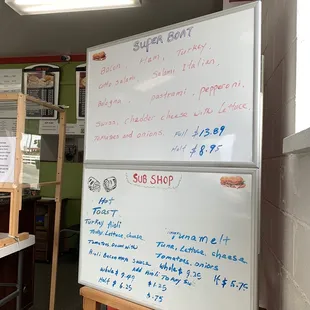 Super BOAT
Bacon, Ham, Turkey
Salami Italian,
Bologna, pastrami, pepperoni,
cheddar cheese with Lettuce
Tomatoes and onions Full $13.89
Half $8.95
SUB SHOP
Hot
Toast
Turkey
Turkey, Lettuce, cheese
Tomatoes, onion with
Bacon sauce
Whole $9.49
Half $6.25
$1.25
.75
Tuna melt
Tuna, Lettuce, cheese
Tomatoes, onions
Whole $9.25 H $5.75